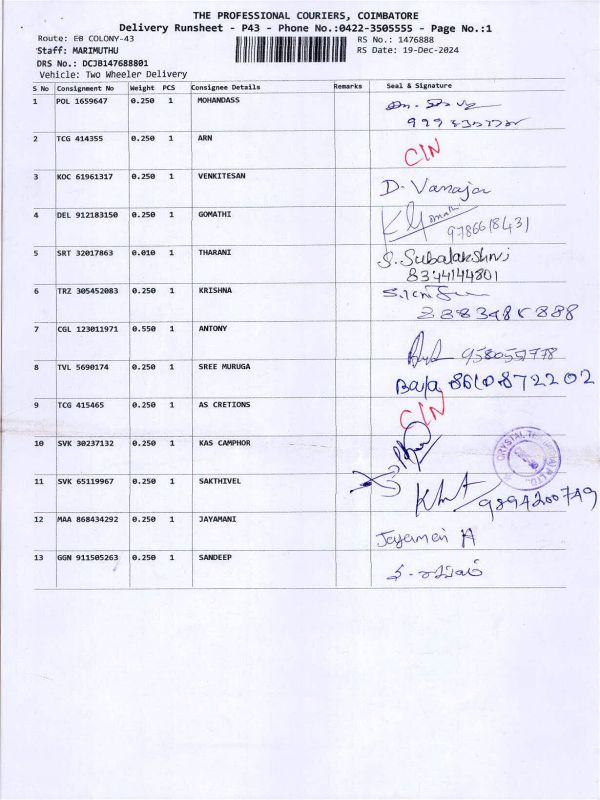 THE PROFESSIONAL COURIERS, COIMBATORE
Delivery Runsheet - P43 - Phone No.:0422-3505555 - Page No.:1
Route: EB COLONY-43 RS No.: 1476888
Staff: MARIMUTHU RS Date: 19-Dec-2024
DRS No.: DCJB147688801
Vehicle: Two Wheeler Delivery
S No Consignment No Weight PCS Consignee Details Remarks Seal & Signature
1 POL 1659647 0.250 1 MOHANDASS
2 TCG 414355 0.250 1 ARN CIN
3 KOC 61961317 0.250 1 VENKITESAN D. Vanaja
4 DEL 912183150 0.250 1 GOMATHI Gomathi 9786618431
5 SRT 32017863 0.010 1 THARANI S. Subalakshmi
8344144801
6 TRZ 305452083 0.250 1 KRISHNA
7 CGL 123011971 0.550 1 ANTONY
8 TVL 5690174 0.250 1 SREE MURUGA Baja 8610872202
9 TCG 415465 0.250 1 AS CRETIONS CIN
10 SVK 30237132 0.250 1 KAS CAMPHOR
11 SVK 65119967 0.250 1 SAKTHIVEL 9894200749
12 MAA 868434292 0.250 1 JAYAMANI Jayamani A
13 GGN 911505263 0.250 1 SANDEEP